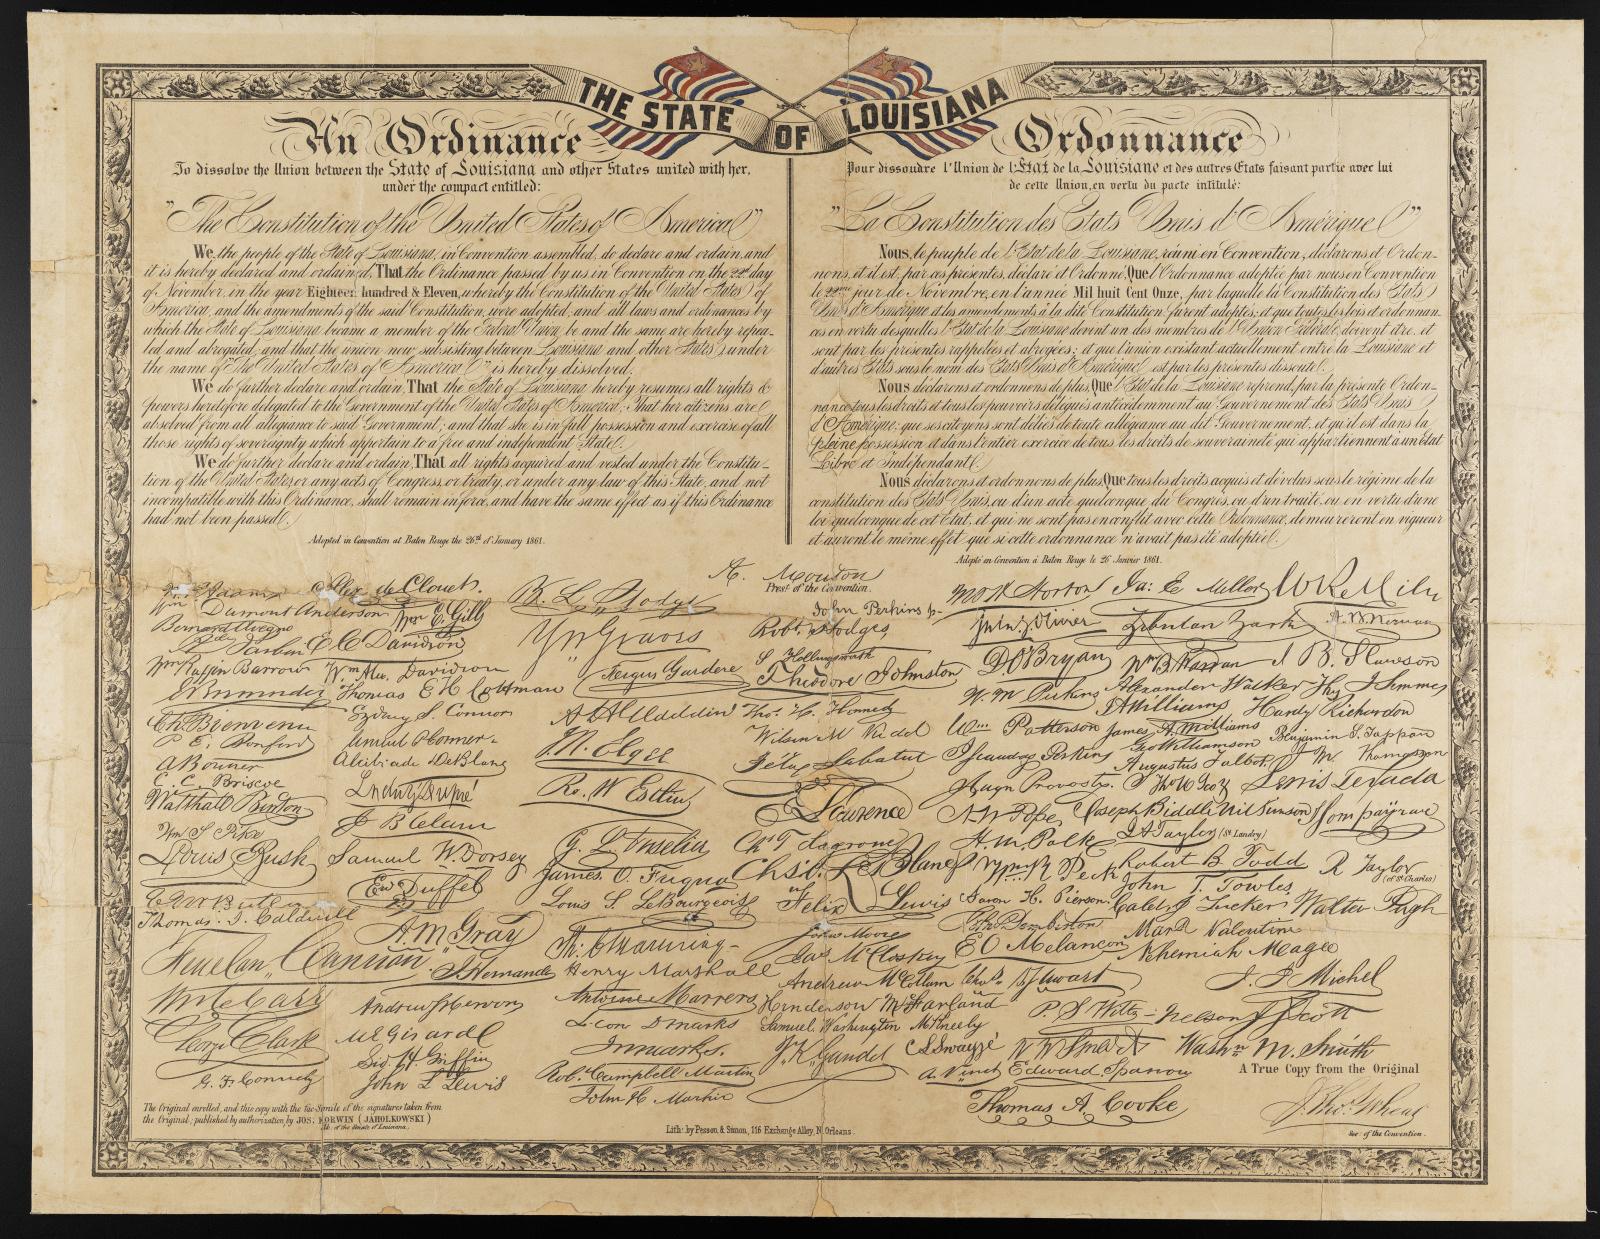 THE STATE OF LOUISIANA
An Ordinance
To dissolve the Union between the State of Louisiana and other States united with her,
under the compact entitled:
"The Constitution of the United States of America"
We, the people of the State of Louisiana, in Convention assembled, do declare and ordain, and
it is hereby declared and ordained, That the Ordinance passed by us in Convention on the 22d day
of November, in the year Eighteen hundred & Eleven, whereby the Constitution of the United States of
America, and the amendments of the said Constitution, were adopted, and all laws and ordinances by
which the State of Louisiana became a member of the Federal Union, be and the same are hereby repea-
led and abrogated; and that the union now subsisting between Louisiana and other States under
the name of "The United States of America" is hereby dissolved.
We do further declare and ordain, That the State of Louisiana hereby resumes all rights &
powers heretofore delegated to the Government of the United States of America; That her citizens are
absolved from all allegiance to said Government; and that she is in full possession and exercise of all
those rights of sovereignty which appertain to a free and independent State.
We do further declare and ordain, That all rights acquired and vested under the Constitu-
tion of the United States, or any acts of Congress, or treaty, or under any law of this State, and not
incompatible with this Ordinance, shall remain in force, and have the same effect as if this Ordinance
had not been passed.
Adopted in Convention at Baton Rouge the 26th of January 1861.
Ordonnance
Pour dissoudre l'Union de l'Etat de la Louisiane et des autres Etats faisant partie avec lui
de cette Union, en vertu du pacte intitulé:
"La Constitution des Etats Unis d'Amérique"
Nous, le peuple de l'Etat de la Louisiane, réuni en Convention, déclarons et Ordon-
nons, et il est, par ces présentes, déclaré et Ordonné, Que l'Ordonnance adoptée par nous en Convention
le 22me jour de Novembre, en l'année Mil huit Cent Onze, par laquelle la Constitution des Etats
Unis d'Amérique et les amendements à la dite Constitution, furent adoptés; et que toutes lois et ordonnan-
ces en vertu desquelles l'Etat de la Louisiane devint un des membres de l'Union Fédérale, doivent être, et
sont par les présentes rappelées et abrogées; et que l'union existant actuellement entre la Louisiane et
d'autres Etats sous le nom des Etats Unis d'Amérique est par les présentes dissoute.
Nous déclarons et ordonnons de plus, Que l'Etat de la Louisiane reprend, par la présente Ordon-
nance, tous les droits et tous les pouvoirs délégués antécédemment au Gouvernement des Etats Unis
d'Amérique; que ses citoyens sont déliés de toute allégeance au dit Gouvernement, et qu'il est dans la
pleine possession et dans l'entier exercice de tous les droits de souveraineté qui appartiennent à un Etat
Libre et Indépendant.
Nous déclarons et ordonnons de plus, Que tous les droits acquis et dévolus sous le régime de la
constitution des Etats Unis, ou d'un acte quelconque du Congrès, ou d'un traité, ou en vertu d'une
loi quelconque de cet Etat, et qui ne sont pas en conflit avec cette Ordonnance, demeureront en vigueur
et auront le même effet que si cette ordonnance n'avait pas été adoptée.
Adopté en Convention à Baton Rouge le 26 Janvier 1861.
A. Mouton
Prest of the Convention.
Adams
Alex. de Clouet.
Wm Dumont Anderson
Wm E. Gill
Bernard Avegno
E C Davidson
Wm Ruffin Barrow
Wm Alex. Davidson
Thomas E H Cottman
Ch. Bienvenu
Sydney S. Connor
P. E. Bonford
A Bonner
Alcibiade DeBlanc
C. C. Briscoe
Walthall Burton
Lucius Dupré
J B Elam
Wm S Pike
Louis Bush
Samuel W. Dorsey
Edw Duffel
E G W Butler
Thomas. J. Caldwell
A. M. Gray
Fenelon Cannon
J. Hernandez
W M C Carr
Andrew J Hervon
George Clark
M E Girard
Sid. H. Griffin
G. F. Connely
John L Lewis
B. L. Hodge
Wm Graves
Fergus Gardere
J. N. Elgee
Ro. W Estlin
G. L. Fuselier
James. O. Fuqua
Louis S. LeBourgeois
Henry Marshall
Antoine Marrero
Leon D Marks
I N Marks.
Robt Campbell Martin
John H Martin
John Perkins jr.
Robt Hodges
S Hollingsworth
Theodore Johnston
Thos. H. Kennedy
Wilson M Kidd
Felix Labatut
S. Laurence
Chs T Lagroue
Chs. LeBlanc
Felix Lewis
John Moore
Jas McCloskey
Andrew McCollam
Henderson McFarland
Samuel Washington McKneely
J. K. Gaudet
C L Swayzé
A. Vinet
Edward Sparrow
Thomas A Cooke
M O H Norton
Ja: E Miller
W R Miles
Jules G. Olivier
Zebulon York
D. O'Bryan
Wm B. Warren
J B. Slawson
W. M Perkins
Alexander Walker
Hy J Semmes
J A Williams
Hardy Richardson
Wm Patterson
James A. Williams
Benjamin S. Tappan
Geo Williamson
Augustus Talbot
J M. Thomasson
Hugn Provosty.
Lewis Texada
A. W. Pope
Joseph Biddle Wilkinson
J Sompayrac
H. M. Polk
J A Taylor (St Landry)
Wm R Peck
Robert B. Todd
R Taylor
(of St Charles)
John T. Towles
Aaron H. Pierson
Caleb J Tucker
Walter Pugh
Thos Pemberton
Mark Valentine
E O Melancon
Nehemiah Magee
Chas D Stewart
J. J Michel
P. S Wiltz
Nelson J Scott
W W Smart
Washn M. Smith
The Original enrolled, and this copy with the fac-Simile of the signatures taken from
the Original; published by authorization, by JOS. KORWIN (JAHOLKOWSKI)
Lib. of the Senate of Louisiana.
Lith: by Pessou & Simon, 116 Exchange Alley, N. Orleans.
A True Copy from the Original
J. Thos. Wheat
Sec: of the Convention.